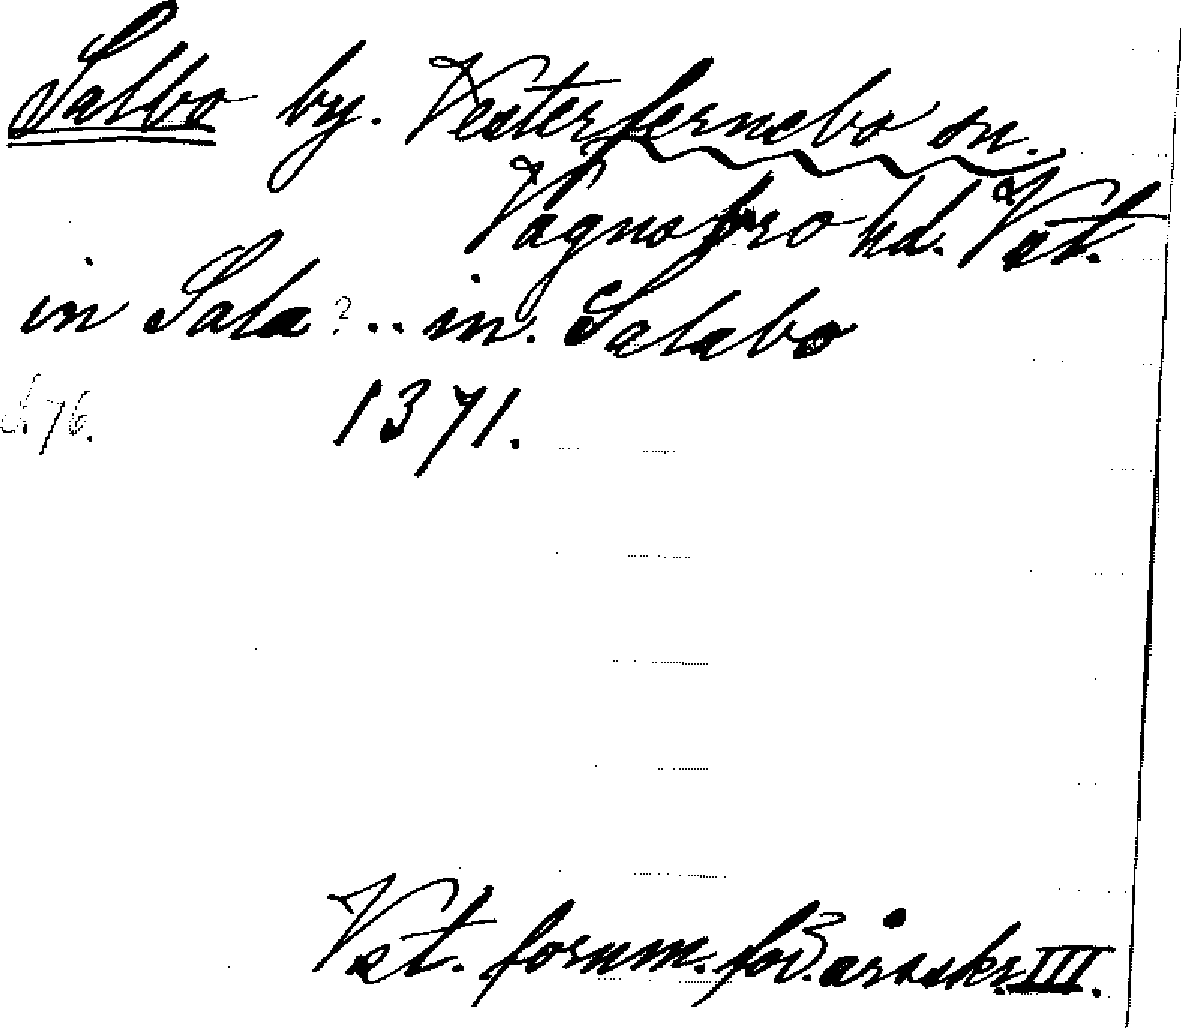 Salbo by. Vesterfernebo sn.
Vagnsbro hd. Vst.
in Sala ? .. in. Salabo
S. 76. 1371.
Vst. fornm. för. årsskr. III.